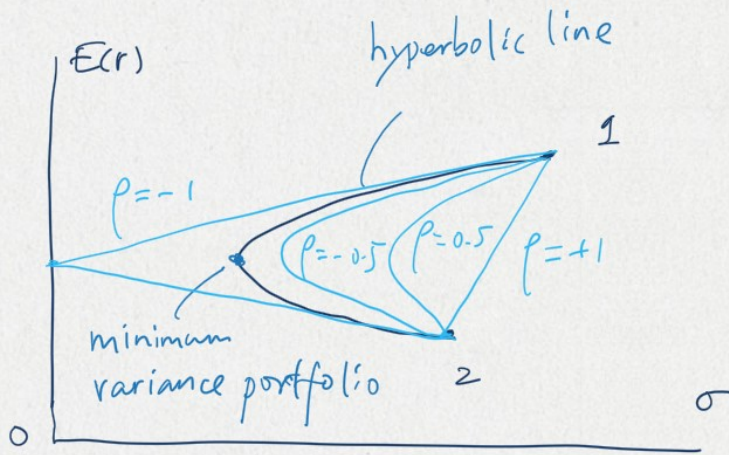 E(r)
hyperbolic line
1
ρ=-1
ρ=-0.5
ρ=0.5
ρ=+1
minimum
variance portfolio
2
σ
0